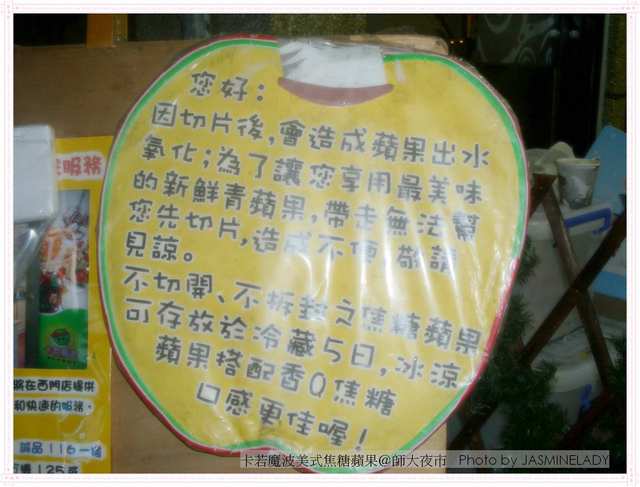 您好：
因切片後，會造成蘋果出水
氧化；為了讓您享用最美味
的新鮮青蘋果，帶走無法幫
您先切片，造成不便，敬請
見諒。
不切開、不拆封之焦糖蘋果
可存放於冷藏5日，冰涼
蘋果搭配香Q焦糖
口感更佳喔！
服務
將在西門店提供
和快速的服務。
誠品116一店
125
卡若魔波美式焦糖蘋果@師大夜市 Photo by JASMINELADY